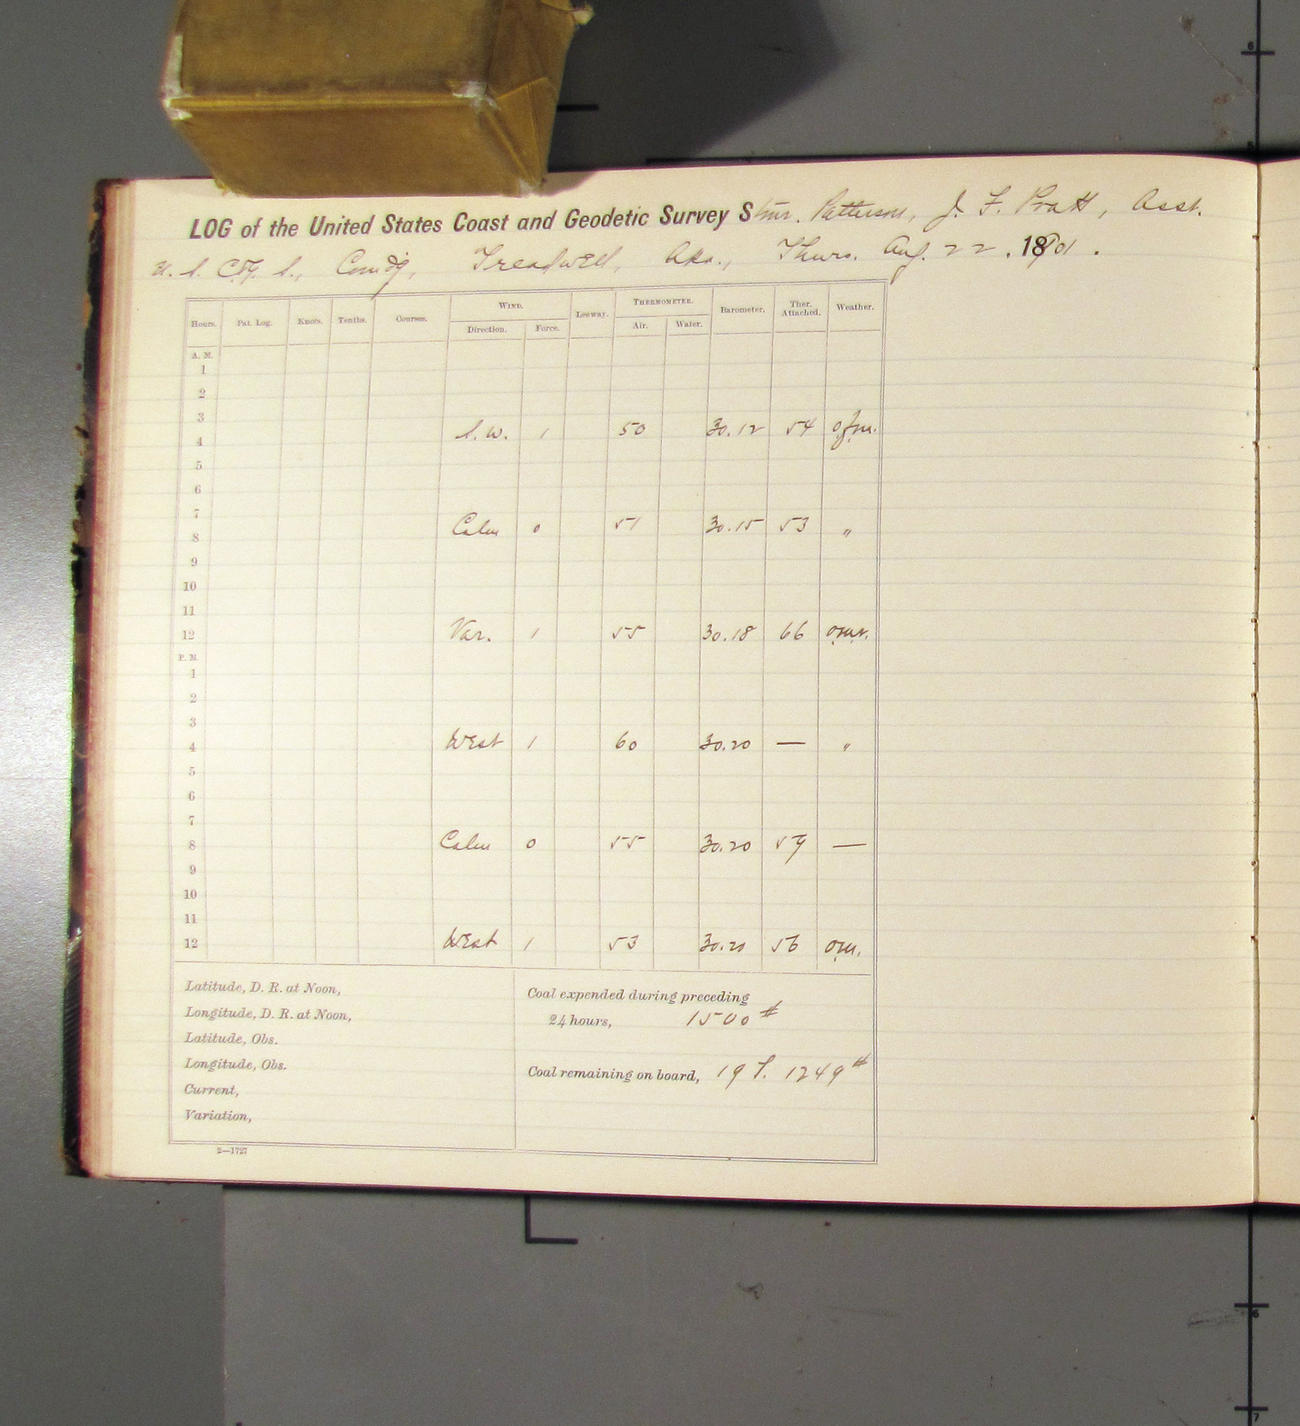 LOG of the United States Coast and Geodetic Survey Stmr. Patterson, J. F. Pratt, Asst.
U. S. C. & G. S., Comdg, Treadwell, Aka., Thurs. Aug. 22, 1901.
Hours. Pat. Log. Knots. Tenths. Courses. WIND. Direction. Force. Leeway. THERMOMETER. Air. Water. Barometer. Ther. Attached. Weather.
A. M.
1
2
3
4 S.W. 1 50 30.12 54 ofm.
5
6
7
8 Calm 0 51 30.15 53 "
9
10
11
12 Var. 1 55 30.18 66
P. M.
1
2
3
4 West 1 60 30.20 — "
5
6
7
8 Calm 0 55 30.20 59 —
9
10
11
12 West 1 53 30.20 56 om.
Latitude, D. R. at Noon,
Longitude, D. R. at Noon,
Latitude, Obs.
Longitude, Obs.
Current,
Variation,
Coal expended during preceding
24 hours, 1500 #
Coal remaining on board, 19 T. 1249 #
2—1727
6
6
7